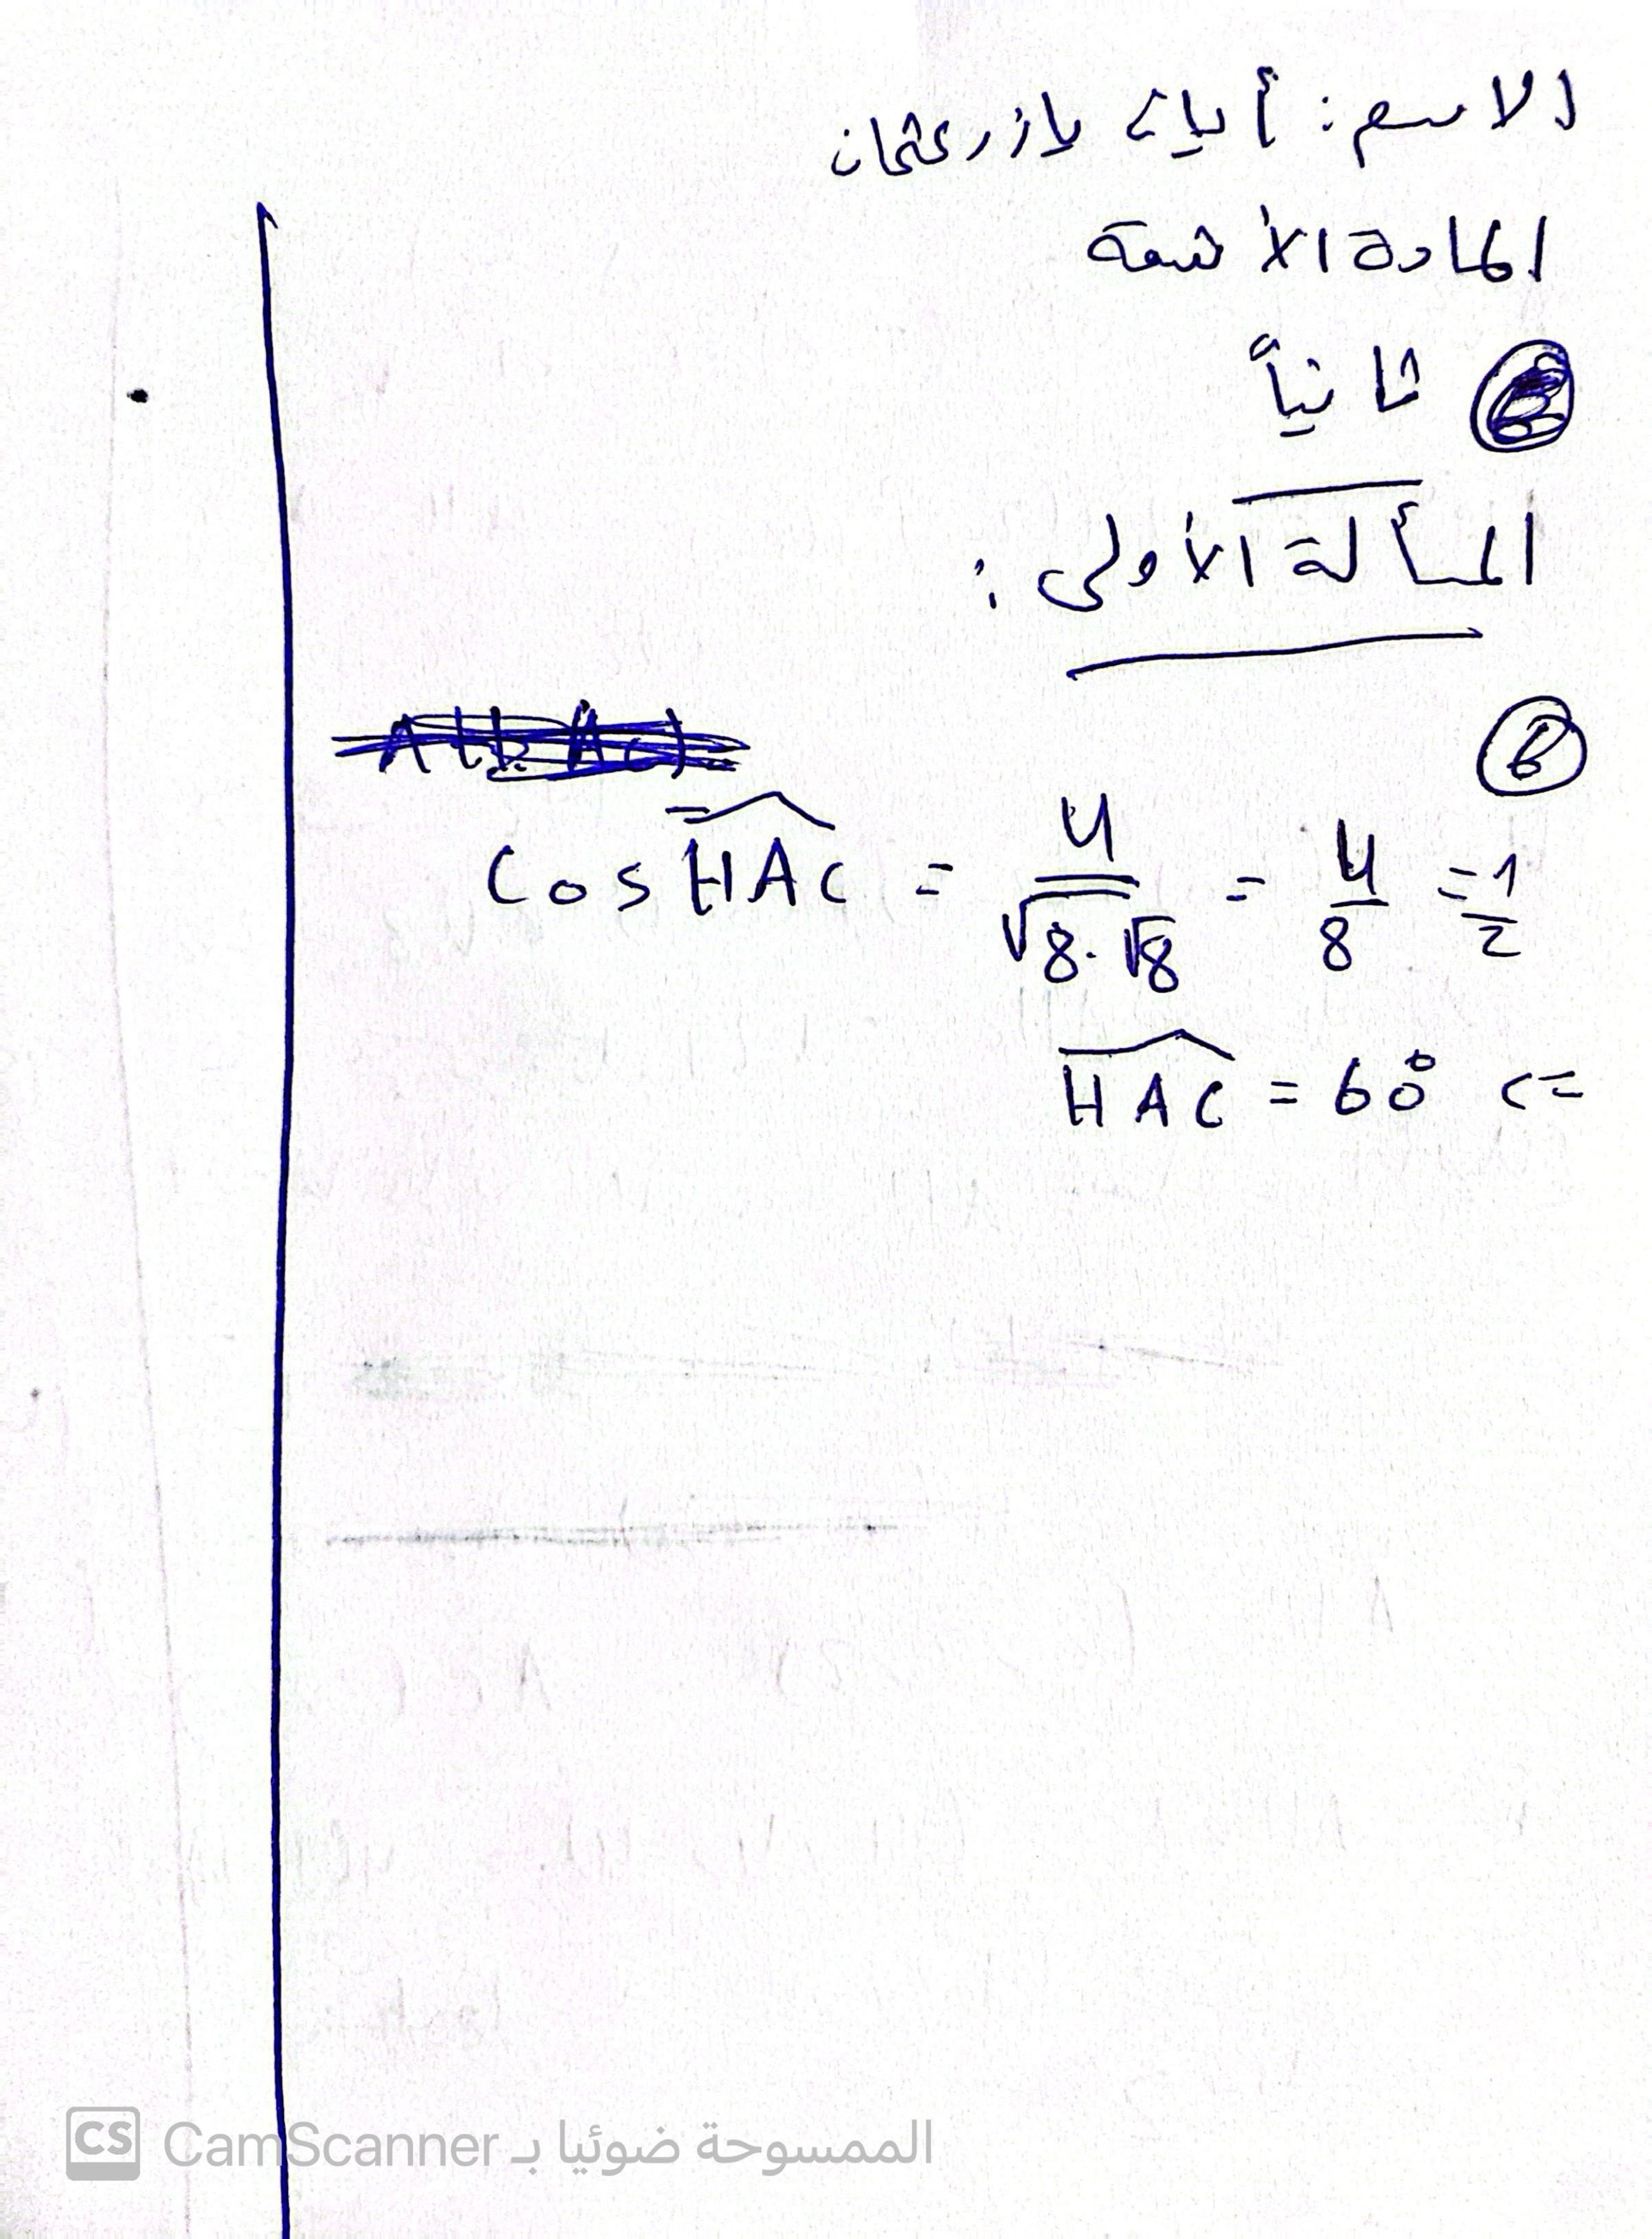 الاسم: أيان يازر عثمان
المادة الأشعة
ثانياً
المسألة الأولى:
6
Cos HAC = 4/√8.√8 = 4/8 = 1/2
HAC = 60° <=
CS CamScanner الممسوحة ضوئيا بـ